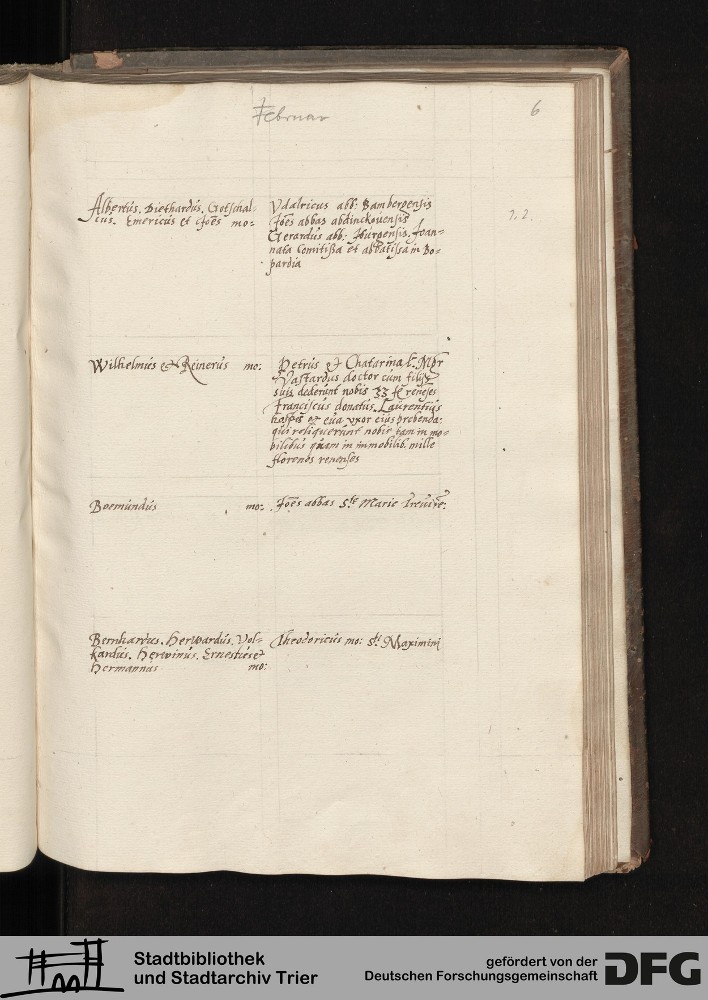 Februar
6
Albertus. Diethardus. Gotschal-
cus. Emericus et Joēs mo:
Vdalricus abb: Bambergensis
Joēs abbas abdinckouensis
Gerardus abb: Iburgensis. Joan-
nata Comitissa et abbatissa in Bo-
pardia
1.2.
Wilhelmus & Reinerus mo:
Petrus & Chatarina
Vastardus doctor cum filijs
suis dederunt nobis 33 reneses
Franciscus donatus. Laurentius
hospes et eua vxor eius prebenda:
qui reliquerunt nobis tam in mo-
bilibus quam in immobilib. mille
florenos renenses
Boemundus mo:
Joēs abbas Ste Marie Treuire:
Bernhardus. Herwardus. Vol-
kardus. Herwinus. Ernestus et
Hermannus mo:
Theodoricus mo: Sti Maximini
Stadtbibliothek
und Stadtarchiv Trier
gefördert von der
Deutschen Forschungsgemeinschaft
DFG